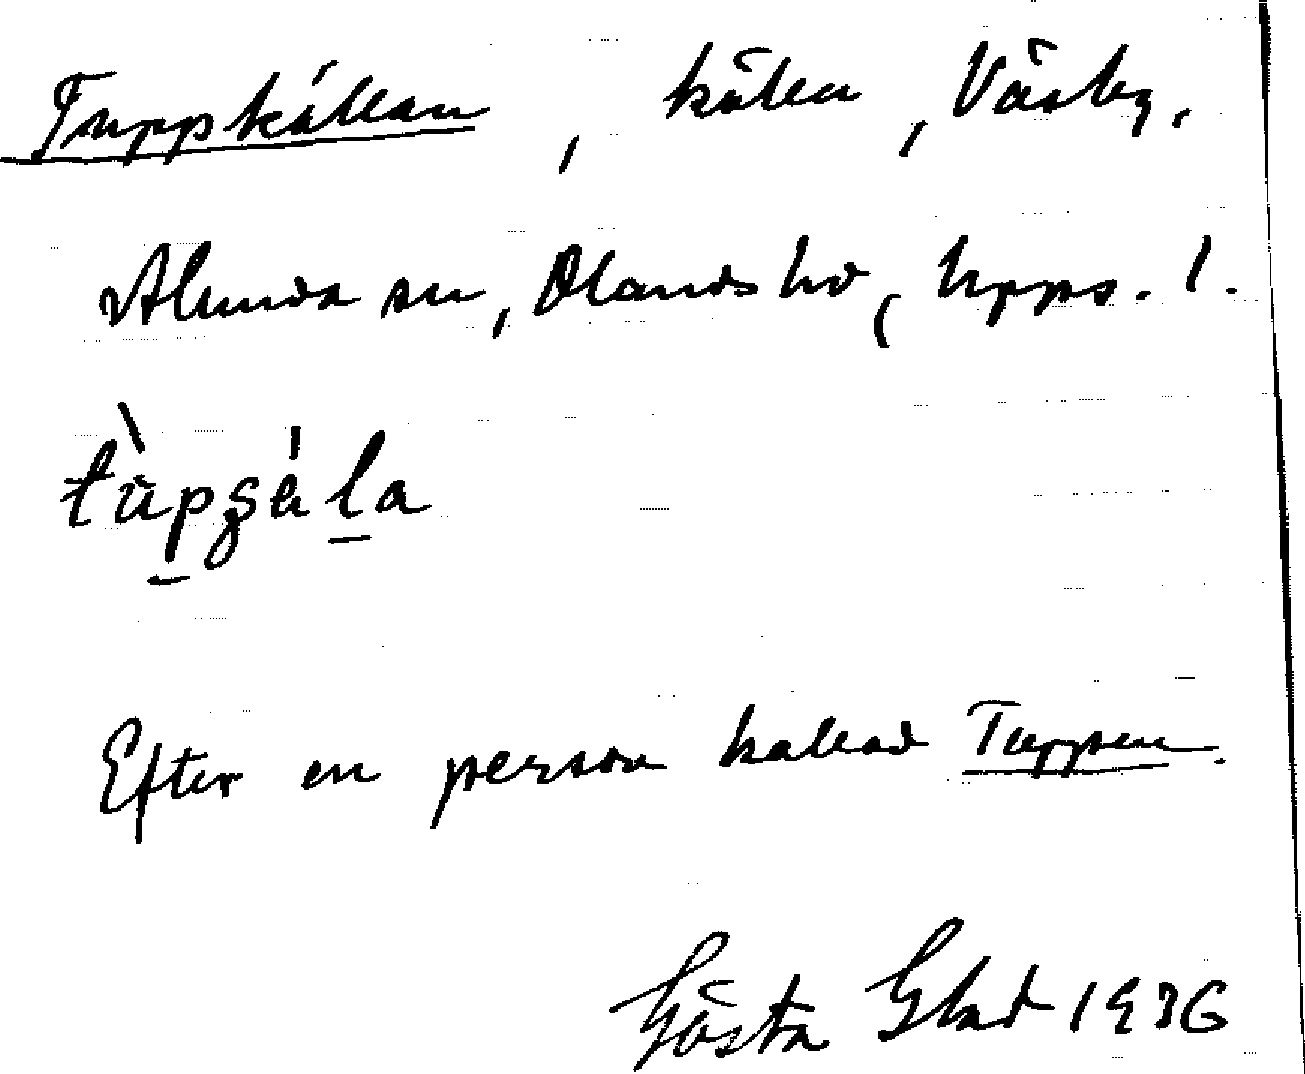 Tuppkällan, källa, Väsby,
Alunda sn, Olands hd, Upps. l.
tùpʂäla
Efter en person kallad Tuppen.
Gösta Glad 1936